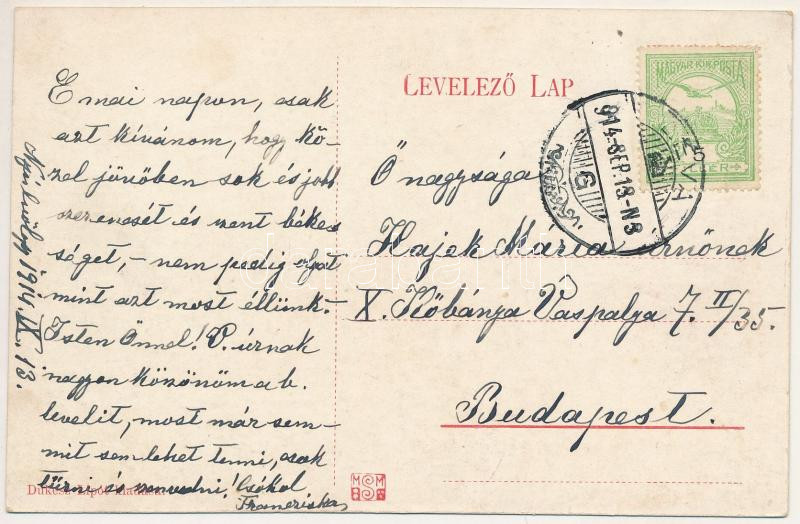 LEVELEZŐ LAP
MAGYAR KIR. POSTA
914 SEP. 13-N3
E mai napon, csak
azt kívánom, hogy kö-
zel jövőben sok és jobb
szerencsét és szent békes
séget, - nem pedig olyat
mint azt most éllünk. -
Isten Önnel! P. úrnak
nagyon köszönöm a b.
levelit, most már sem-
mit sem lehet tenni, csak
tűrni és szenvedni! Csókol
Franciska
1914 IX. 13.
Ő nagysága
Hajek Mária úrnőnek
X. Kőbánya Vaspálya 7. II/35.
Budapest.
Dukesz Lipót kiadása.